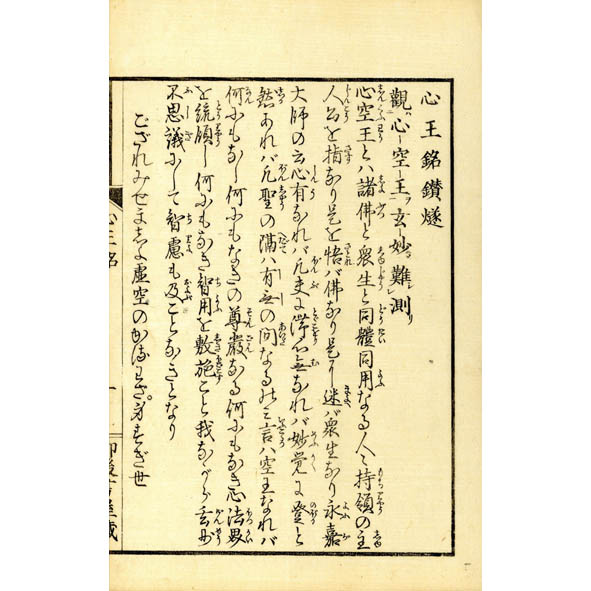 心王銘鑚燧
觀心空王玄妙難測
心空王とハ諸佛と衆生と同體同用なる人々持領の主
人公を指なり是を悟バ佛なり是に迷バ衆生なり永嘉
大師の云心有なれバ凡夫に滞心無なれバ妙覚に登と
然あれバ凡聖の隔ハ有無の間なるのミ言ハ空王なれバ
何にもなし何にもなきの尊嚴なる何にもなき心法界
を統領し何にもなき智用を敷施こと我ながら玄妙
不思議にして智慮も及ことなきとなり
ござれみせませよ虚空の
心王銘
一